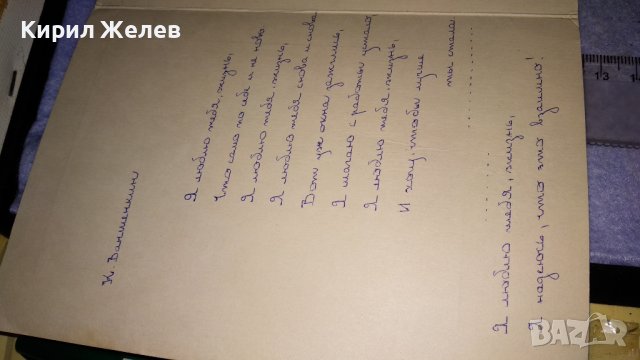 Кирил Желев
К. Ваншенкин
Я люблю тебя, жизнь,
Что само по себе и не ново
Я люблю тебя, жизнь,
Я люблю тебя снова и снова
Вот уж окна зажглись,
Я шагаю с работы устало,
Я люблю тебя, жизнь,
И хочу чтобы лучше
ты стала
. . . . . . . . . . . .
Я люблю тебя, жизнь,
И надеюсь, что это взаимно!
13
14
BAZAR